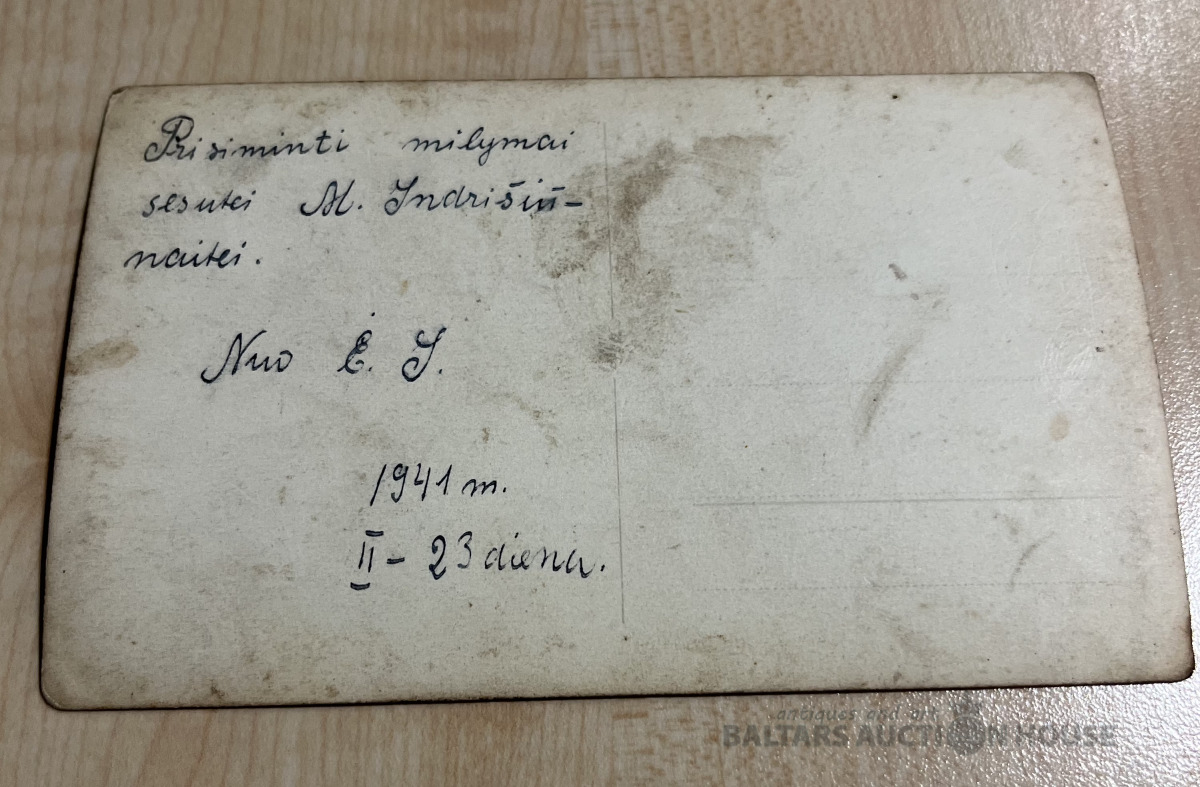 Prisiminti milymai
sesutei M. Indrišiū-
naitei.
Nuo Ė. J.
1941 m.
II - 23 diena.
antiques and art
BALTARS AUCTION HOUSE